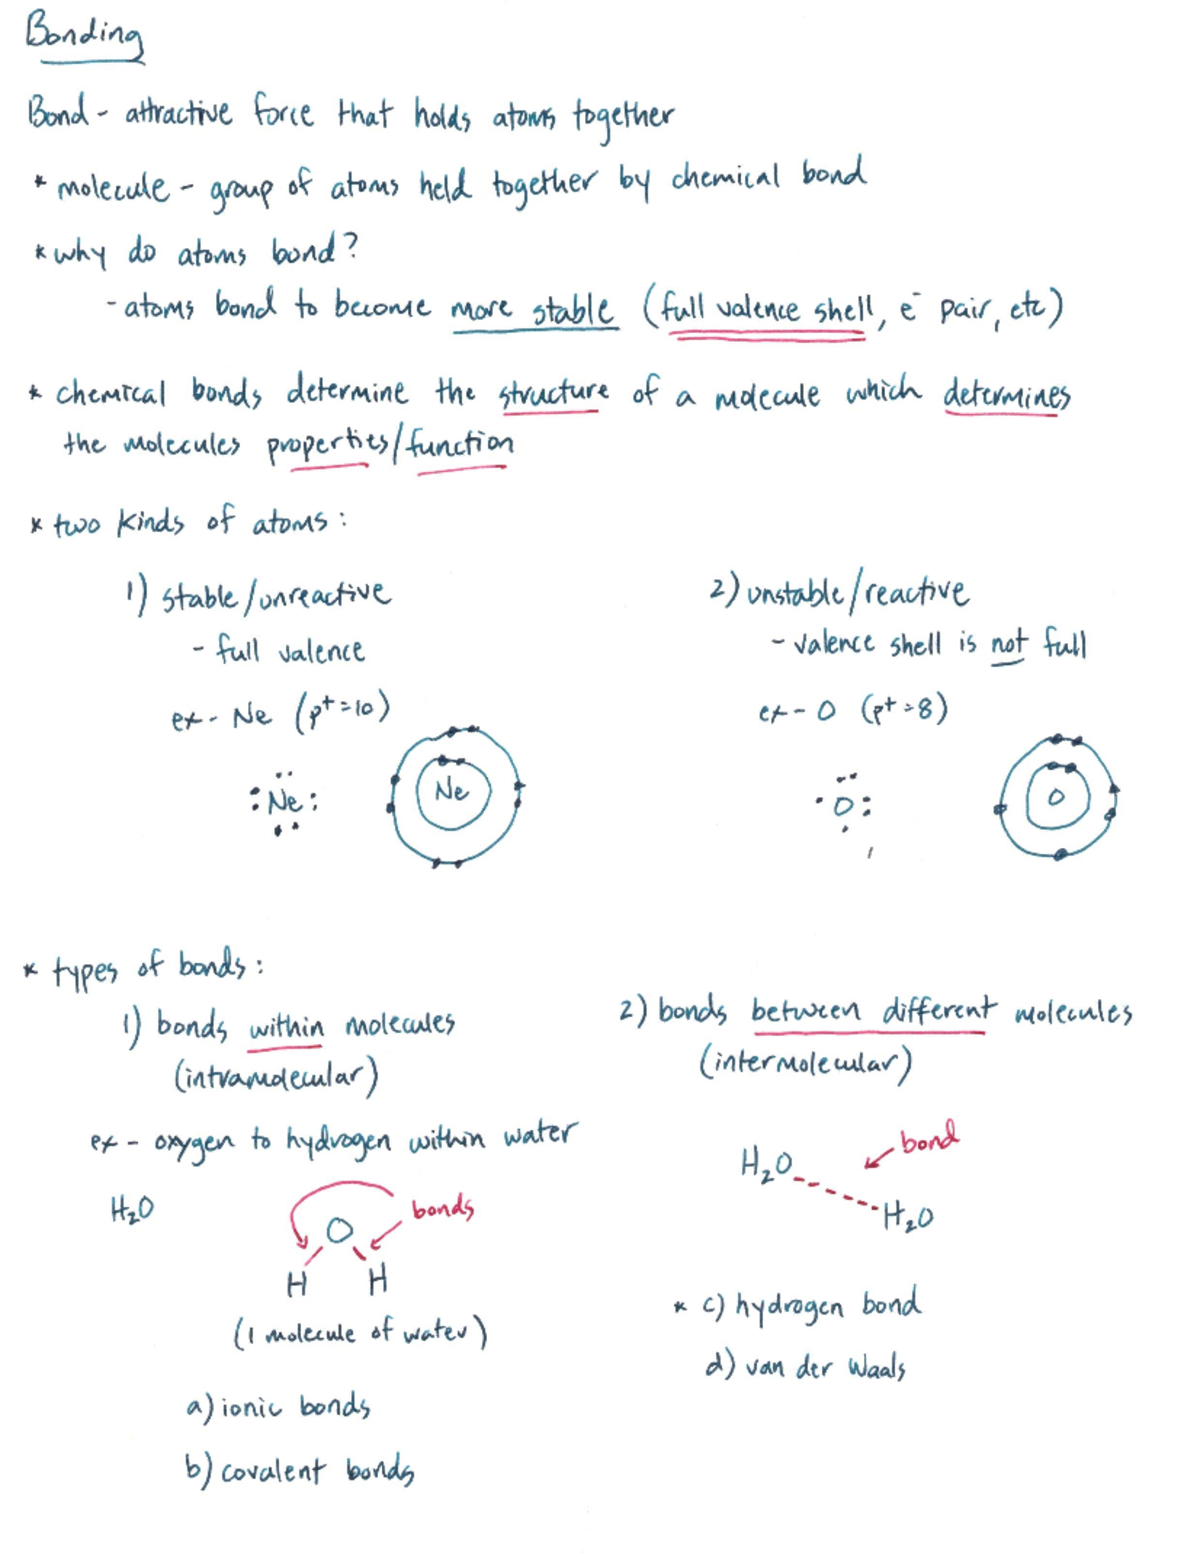 Bonding
Bond - attractive force that holds atoms together
* molecule - group of atoms held together by chemical bond
* why do atoms bond?
- atoms bond to become more stable (full valence shell, e⁻ pair, etc)
* chemical bonds determine the structure of a molecule which determines
the molecules properties/function
* two kinds of atoms:
1) stable/unreactive
- full valence
ex - Ne (p⁺=10)
Ne
Ne
2) unstable/reactive
- valence shell is not full
ex - O (p⁺=8)
O
O
* types of bonds:
1) bonds within molecules
(intramolecular)
ex - oxygen to hydrogen within water
H₂O
bonds
O
H H
(1 molecule of water)
a) ionic bonds
b) covalent bonds
2) bonds between different molecules
(intermolecular)
bond
H₂O
H₂O
* c) hydrogen bond
d) van der Waals